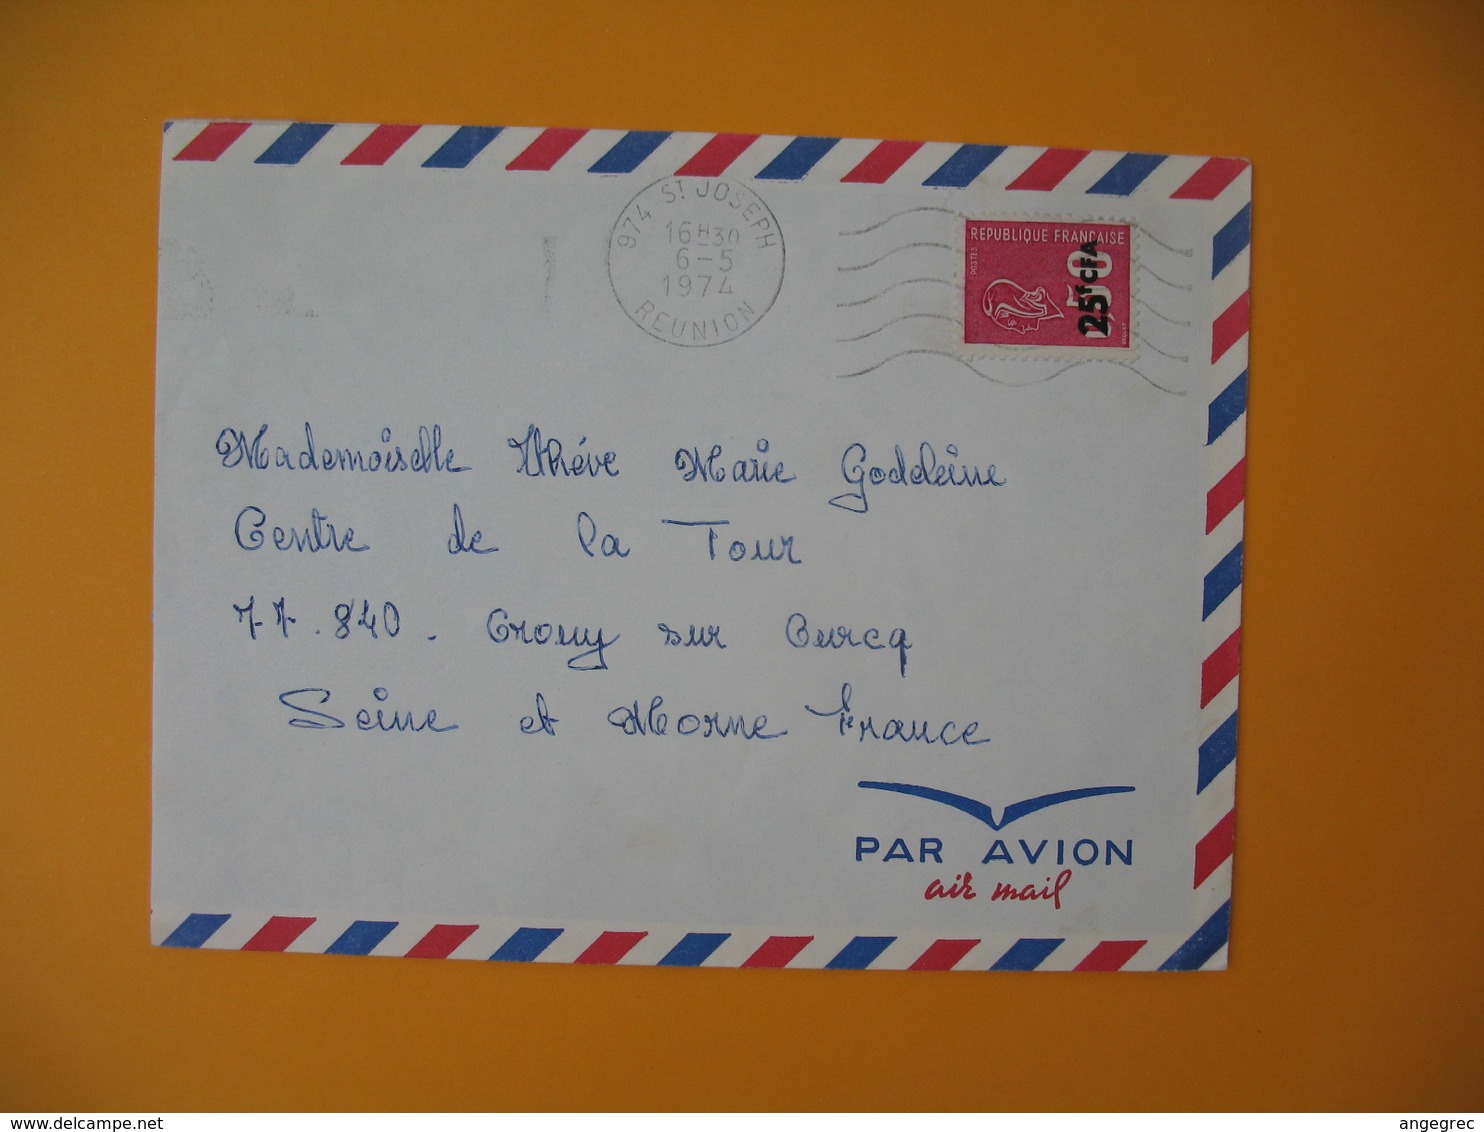 974 ST JOSEPH
16H30
6-5
1974
REUNION
REPUBLIQUE FRANÇAISE
POSTES
0,50
25f CFA
BEQUET
Mademoiselle Théve Marie Godeleine
Centre de la Tour
77.840. Crouy sur Ourcq
Seine et Morne France
PAR AVION
air mail
delcampe.net
angegrec